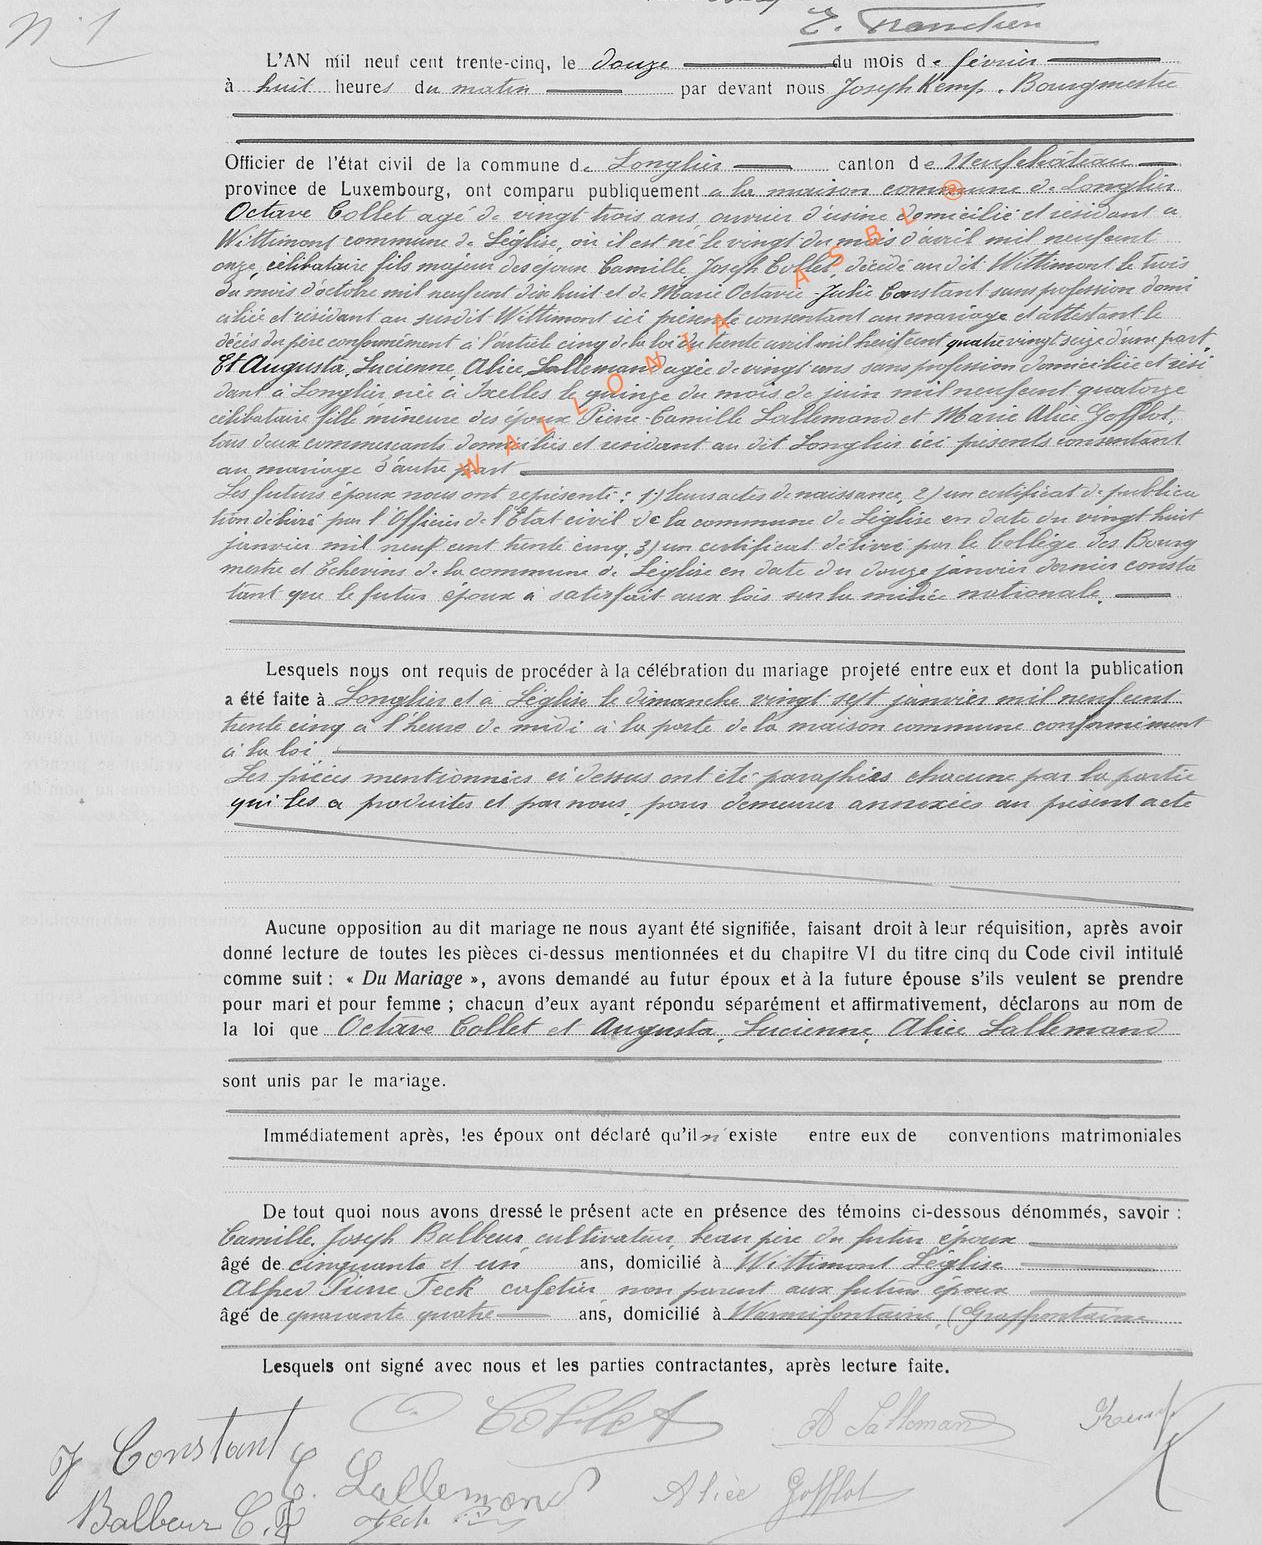 N° 1
L'AN mil neuf cent trente-cinq, le douze du mois de février
à huit heures du matin par devant nous Joseph Kemp, Bourgmestre
Officier de l'état civil de la commune de Longlier canton de Neufchâteau
province de Luxembourg, ont comparu publiquement à la maison commune de Longlier
Octave Collet agé de vingt trois ans, ouvrier d'usine domicilié et résidant à
Wittimont commune de Léglise, où il est né le vingt du mois d'avril mil neuf cent
onze, célibataire fils majeur des époux Camille Joseph Collet, décédé au dit Wittimont le trois
du mois d'octobre mil neuf cent dix huit et de Marie Octavie Julie Constant sans profession domi
ciliée et résidant au susdit Wittimont ici présente consentant au mariage et attestant le
décès du père conformément à l'article cinq de la loi du trente avril mil huit cent quatre vingt seize d'une part,
Et Augusta, Lucienne, Alice, Lallemand agée de vingt ans sans profession domiciliée et rési
dant à Longlier née à Ixelles le quinze du mois de juin mil neuf cent quatorze
célibataire fille mineure des époux Pierre-Camille Lallemand et Marie Alice Gofflot,
tous deux commercants domiciliés et résidant au dit Longlier ici présents consentant
au mariage d'autre part
Les futurs époux nous ont représenté : 1) leurs actes de naissance, 2) un certificat de publica
tion délivré par l'Officier de l'Etat civil de la commune de Léglise en date du vingt huit
janvier mil neuf cent trente cinq, 3) un certificat délivré par le Collège des Bourg
mestre et Echevins de la commune de Léglise en date du douze janvier dernier consta
tant que le futur époux a satisfait aux lois sur la milice nationale.
Lesquels nous ont requis de procéder à la célébration du mariage projeté entre eux et dont la publication
a été faite à Longlier et à Léglise le dimanche vingt-sept janvier mil neuf cent
trente cinq à l'heure de midi à la porte de la maison commune conformément
à la loi
Les pièces mentionnées ci dessus ont été paraphées chacune par la partie
qui les a produites et par nous, pour demeurer annexées au présent acte
Aucune opposition au dit mariage ne nous ayant été signifiée, faisant droit à leur réquisition, après avoir
donné lecture de toutes les pièces ci-dessus mentionnées et du chapitre VI du titre cinq du Code civil intitulé
comme suit : « Du Mariage », avons demandé au futur époux et à la future épouse s'ils veulent se prendre
pour mari et pour femme ; chacun d'eux ayant répondu séparément et affirmativement, déclarons au nom de
la loi que Octave Collet et Augusta, Lucienne, Alice Lallemand
sont unis par le mariage.
Immédiatement après, les époux ont déclaré qu'il n'existe entre eux de conventions matrimoniales
De tout quoi nous avons dressé le présent acte en présence des témoins ci-dessous dénommés, savoir :
Camille, Joseph Balbeur, cultivateur, beau père du futur époux
âgé de cinquante et un ans, domicilié à Wittimont Léglise
Alfred Pierre Feck cafetier non parent aux futurs époux
âgé de quarante quatre ans, domicilié à Warmifontaine, (Grapfontaine
Lesquels ont signé avec nous et les parties contractantes, après lecture faite.
O Collet A Lallemand Kemp
J Constant C. Lallemand Alice Gofflot
Balbeur C. J Feck
WALLONIA ASBL ®